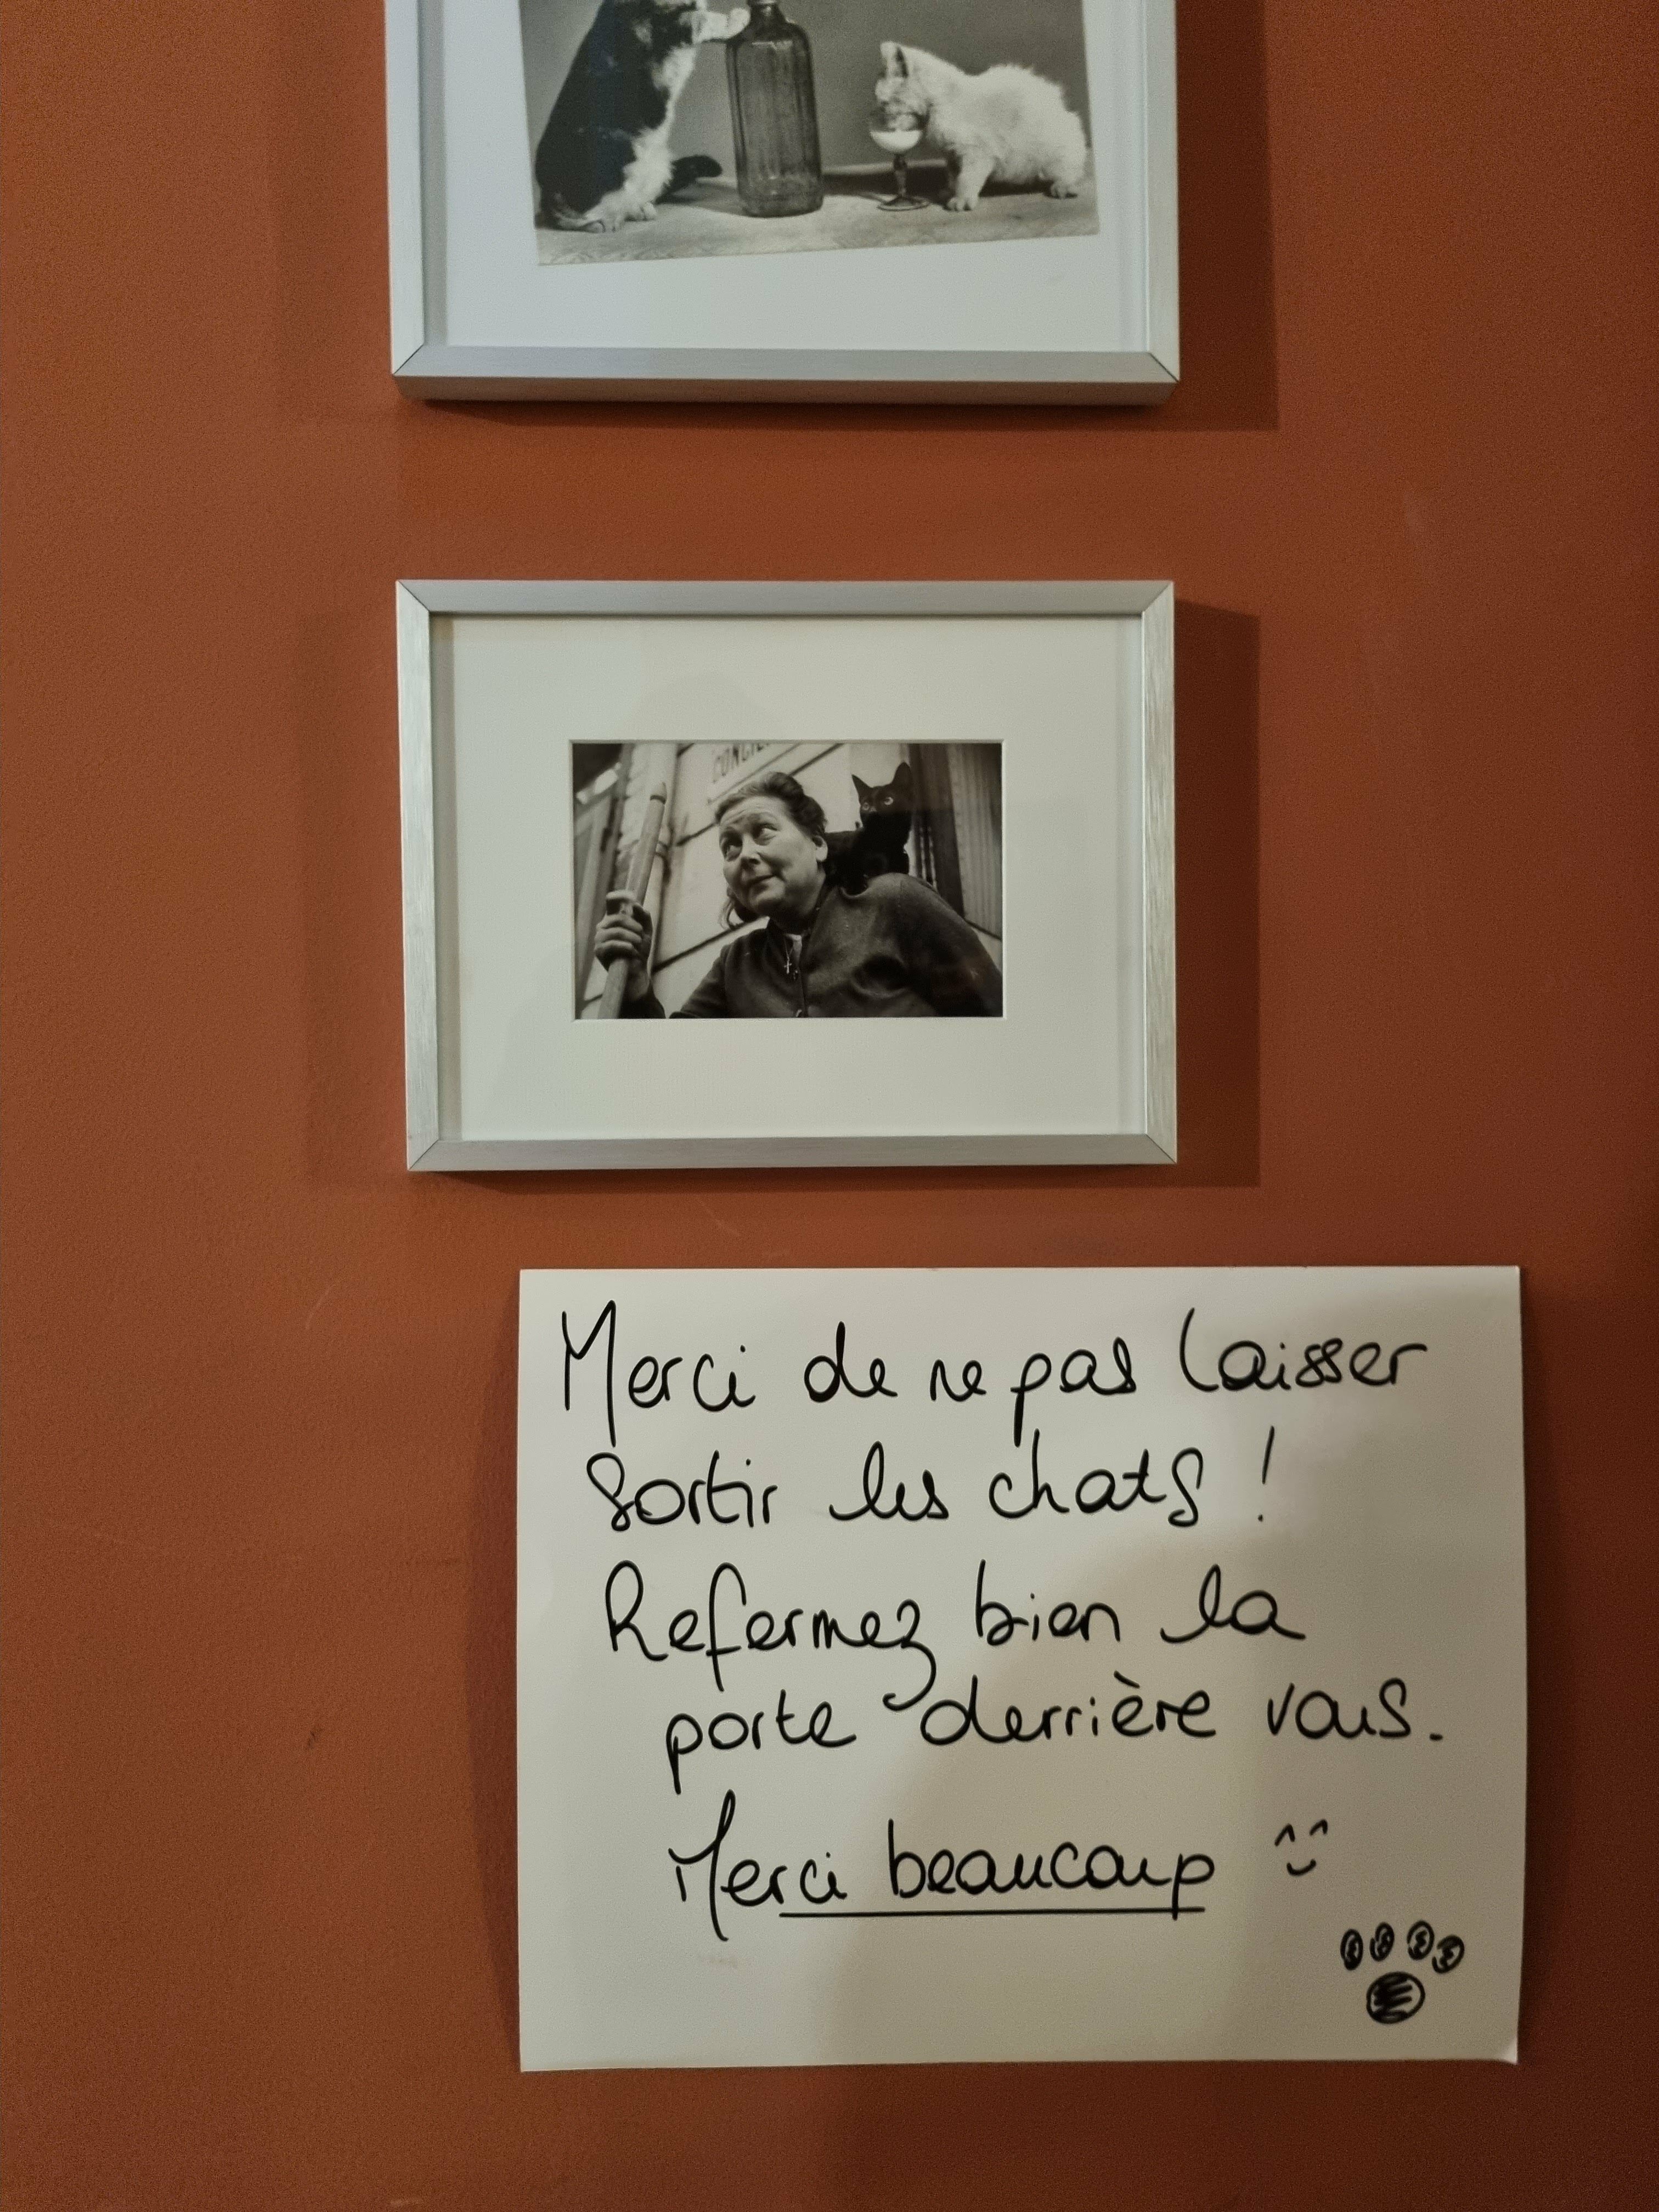 Merci de ne pas laisser
sortir les chats !
Refermez bien la
porte derrière vous.
Merci beaucoup ^^